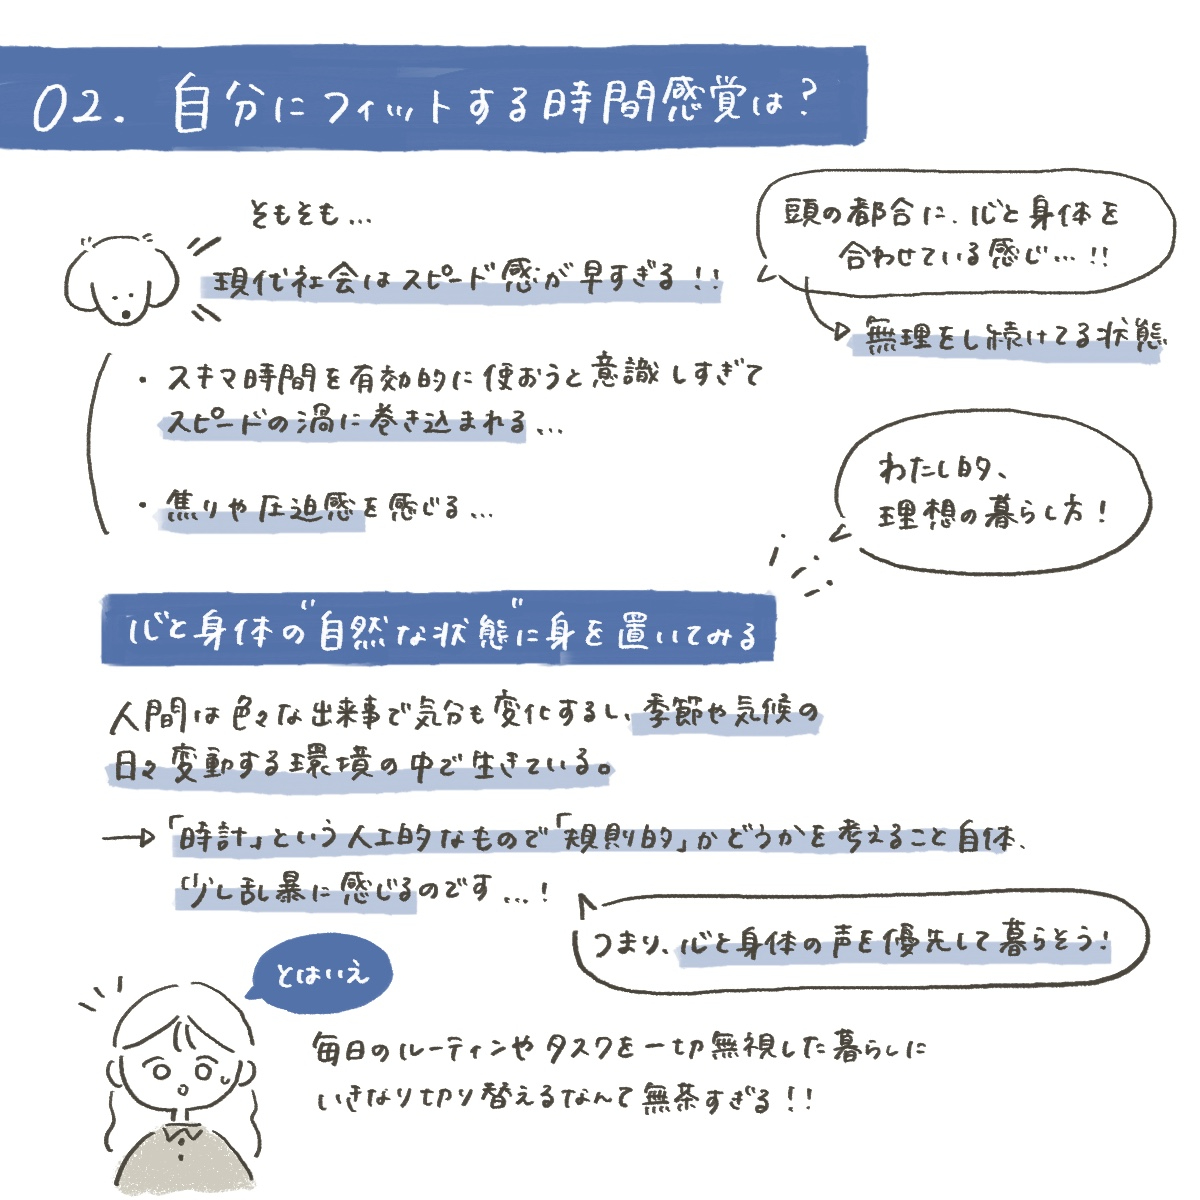 02. 自分にフィットする時間感覚は?
そもそも...
現代社会はスピード感が早すぎる!!
頭の都合に、心と身体を
合わせている感じ...!!
無理をし続けてる状態
・スキマ時間を有効的に使おうと意識しすぎて
スピードの渦に巻き込まれる...
・焦りや圧迫感を感じる...
わたし的、
理想の暮らし方!
心と身体の"自然な状態"に身を置いてみる
人間は色々な出来事で気分も変化するし、季節や気候の
日々変動する環境の中で生きている。
→「時計」という人工的なもので「規則的」かどうかを考えること自体、
少し乱暴に感じるのです...!
つまり、心と身体の声を優先して暮らそう!
とはいえ
毎日のルーティンやタスクを一切無視した暮らしに
いきなり切り替えるなんて無茶すぎる!!